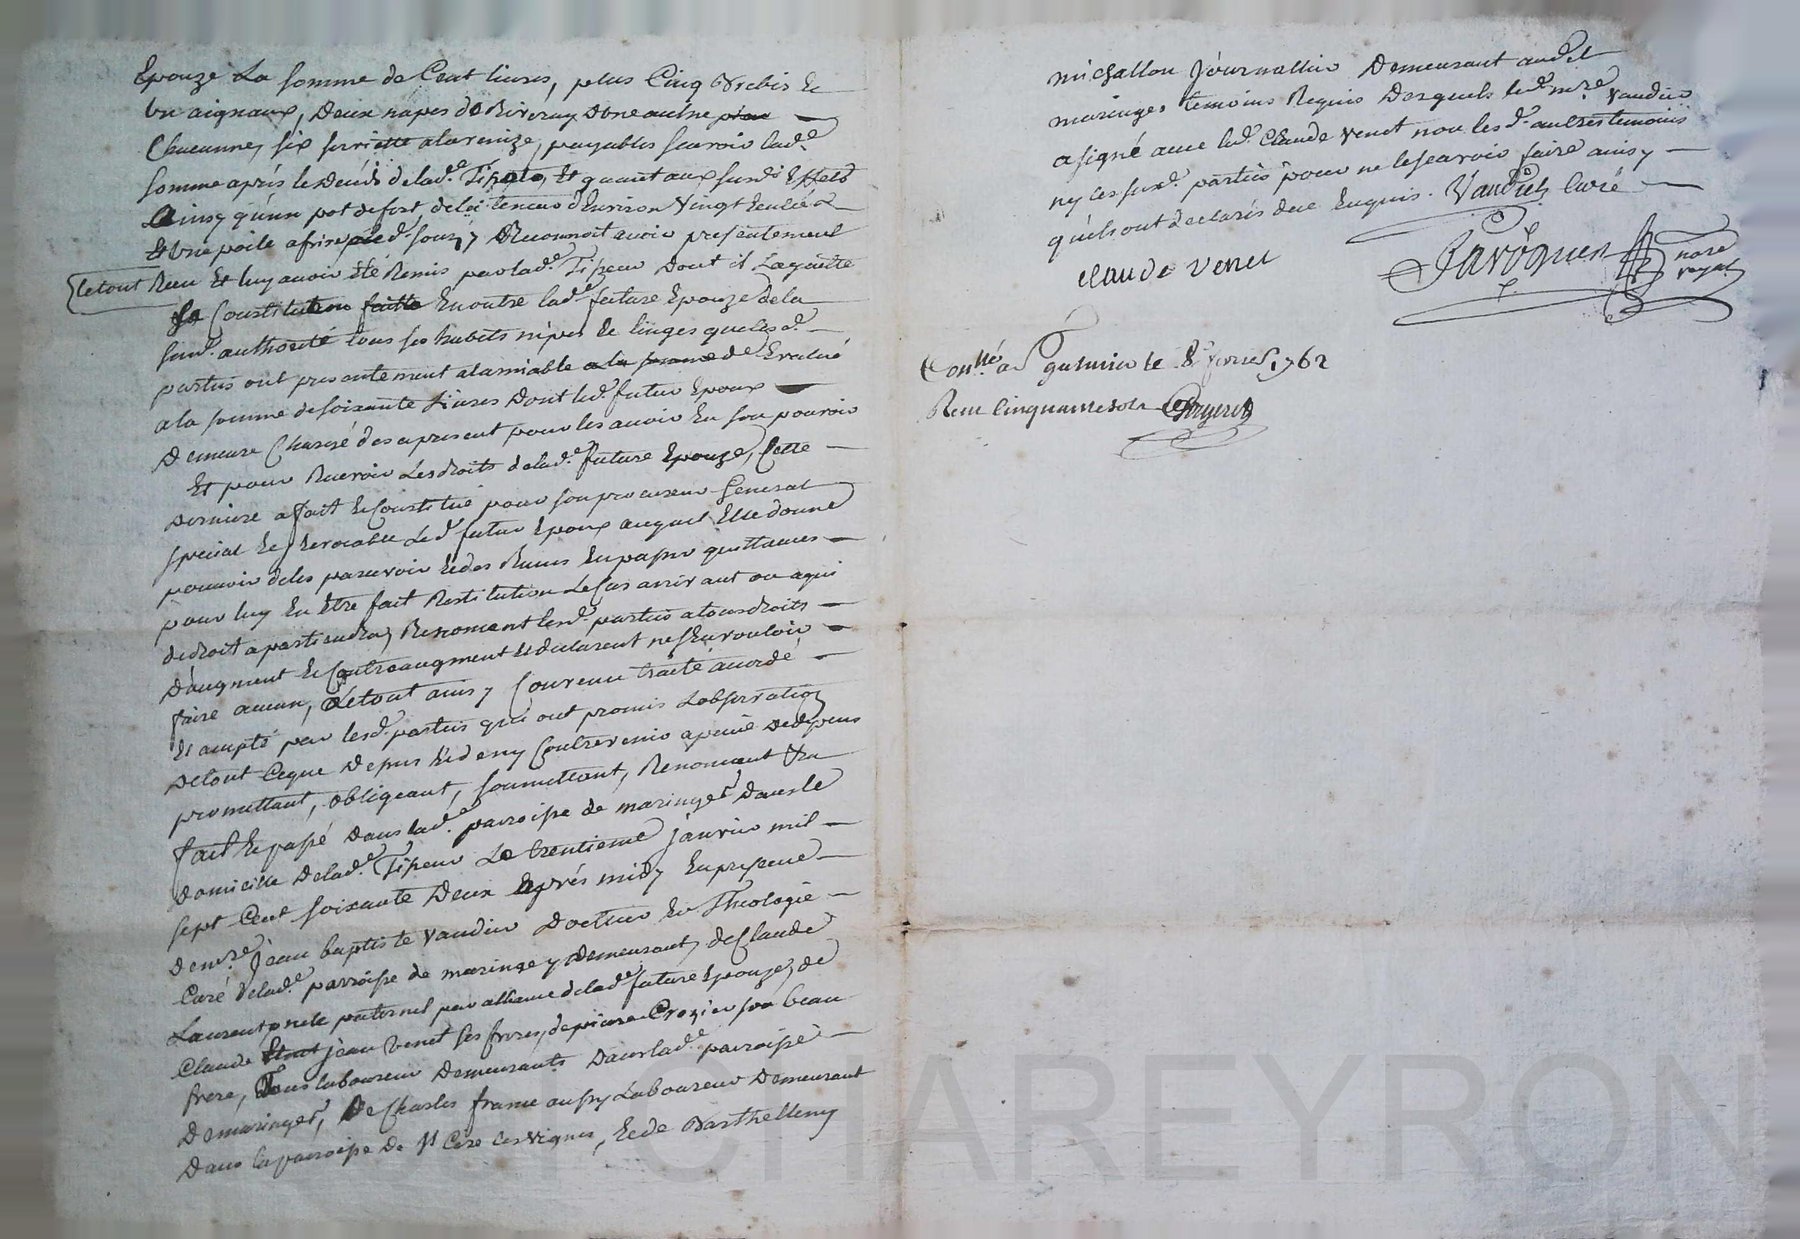 Epouze La somme de Cent livres, plus Cinq Brebis Et
un aignaux, Deux napes de Riveray d'une aulne
Chacunne, six serviette alavenize, payables scavoir lad.e
somme après le Deceds de lad.e Tixeur, Et quant aux susd.s Effets
Ainsy qu'un pot de fert, de la teneur d'Environ vingt Ecuelé
Et Une poile afrire led. fouzy Reconnoit avoir presentement
Le tout Receu Et luy avoir été Remis par lad.e Tixeur Dont il La quitte
Se Constitue En outre lad.e future Epouze de la
sus.d authorité tous ses habits nipes Et linges que lesd.
parties ont presentement alamiable Evalué
a la somme de soixante Livres Dont led. futur Epoux
Demeure Chargé des apresent pour les avoir En son pouvoir
Et pour Recevoir Les droits de lad.e future Epouze, Cette
Derniere a fait Et Constitué pour son procureur General
special Et Irrevocable Led. futur Epoux auquel Elle donne
pouvoir de les parcevoir Et des Receus En passer quittances
pour luy En Etre fait Restitution Le Cas arrivant ou a qui
de droit apartiendra, Renoncent lesd. parties a tous droits
D'augment Et Contreaugment Et declarent ne s'En vouloir
faire aucun, Et tout ainsy Convenu traité accordé
Et accepté par lesd. parties qui ont promis L'observation
De tout Ceque Depus Et de ny Contrevenir a peine De depens
promettant, obligeant, soumettant, Renonceant &ra
fait Et passé Dans lad.e parroisse de maringes Dans le
Domicille De lad.e Tixeur Le trentieme janvier mil
sept Cent soixante Deux Après midy En presence
De m.re jean baptiste vaudier Docteur En Theologie
Curé de lad.e parroisse de maringe y Demeurant, de Claude
Laurent oncle paternel par alliance de lad.e future Epouze, de
Claude jean Venet ses freres, de pierre Crozier son beau
frere, Tous laboureur Demeurants Dans lad.e parroisse
De maringes, De Charles frame aussy Laboureur Demeurant
Dans la parroisse de st Cire les vignes, Et de Barthellemy
michallon Journallier Demeurant aud.t
maringes temoins Requis Desquels led. m.re Vaudier
a signé avec led. Claude Venet non lesd. autres temoins
ny les susd. parties pour ne le scavoir faire ainsy
qu'ils ont declarés de ce Enquis. Vaudier Curé
claude Venet
Javogues
nore
royal
Con.llé a S.t galmier le 8 fevrier 1762
Receu Cinquante sols
CHAREYRON